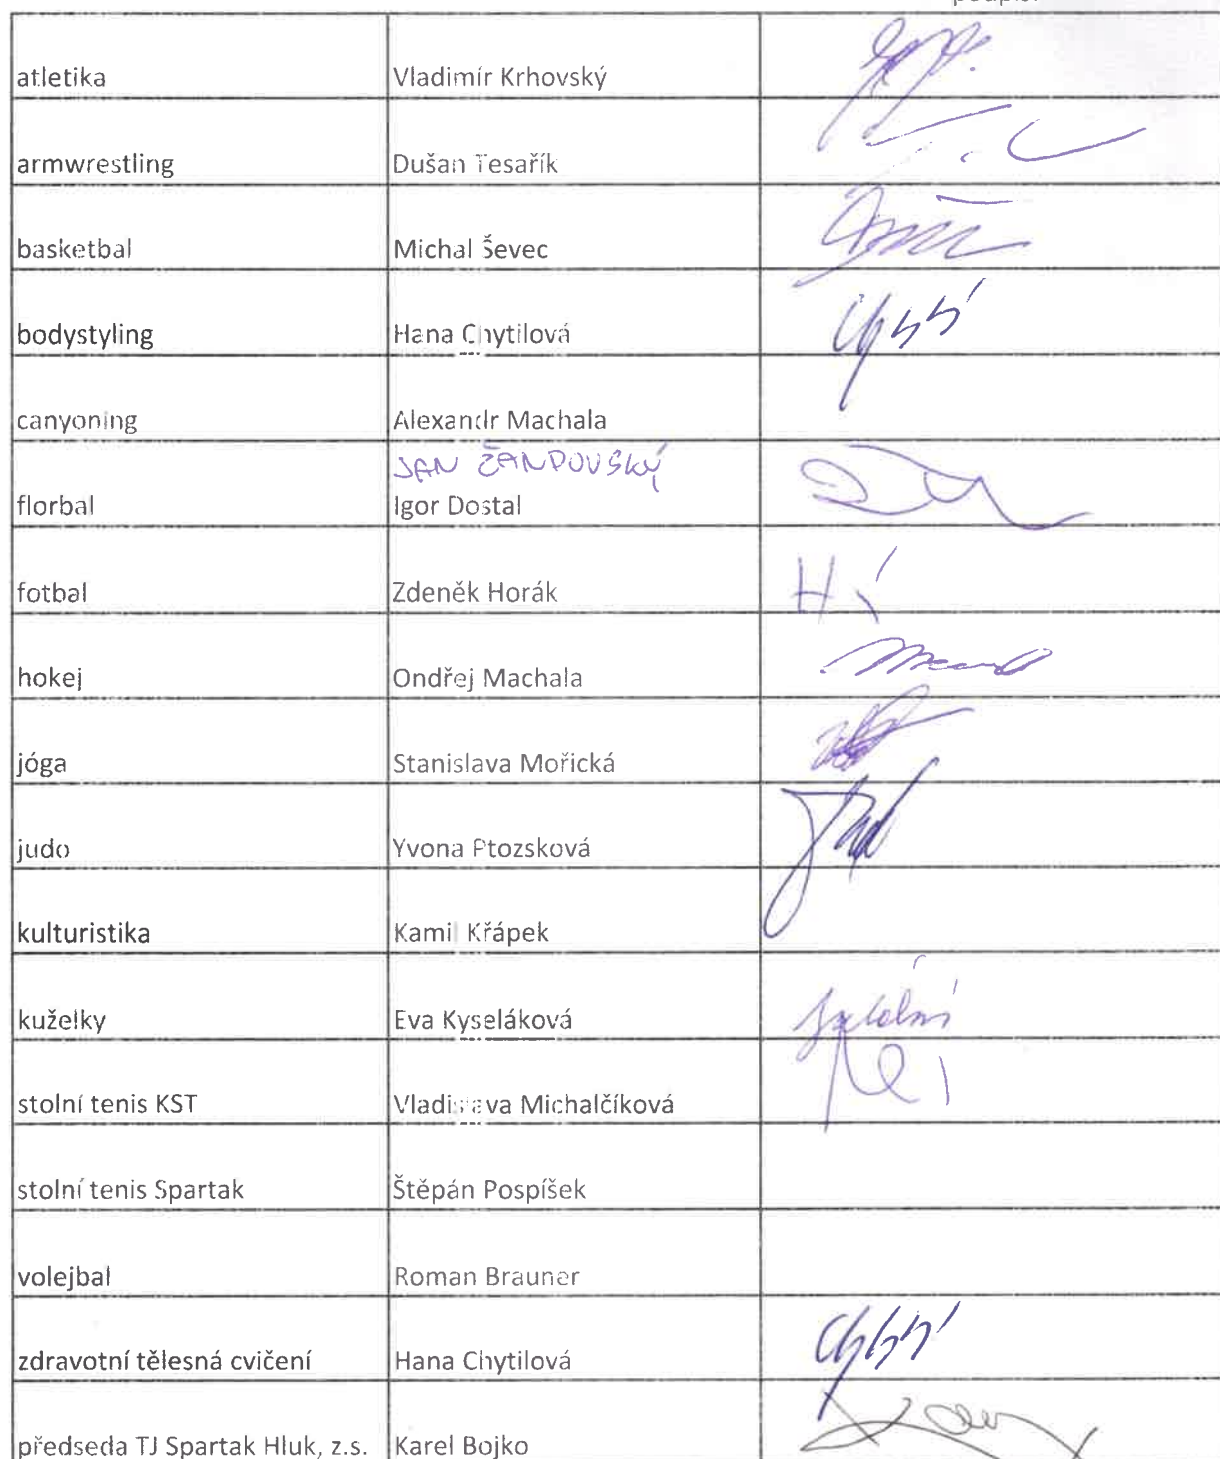 atletika Vladimír Krhovský
armwrestling Dušan Tesařík
basketbal Michal Ševec
bodystyling Hana Chytilová
canyoning Alexandr Machala
JAN ŽANDOVSKÝ
florbal Igor Dostal
fotbal Zdeněk Horák
hokej Ondřej Machala
jóga Stanislava Mořická
judo Yvona Ptozsková
kulturistika Kamil Křápek
kuželky Eva Kyseláková
stolní tenis KST Vladislava Michalčíková
stolní tenis Spartak Štěpán Pospíšek
volejbal Roman Brauner
zdravotní tělesná cvičení Hana Chytilová
předseda TJ Spartak Hluk, z.s. Karel Bojko